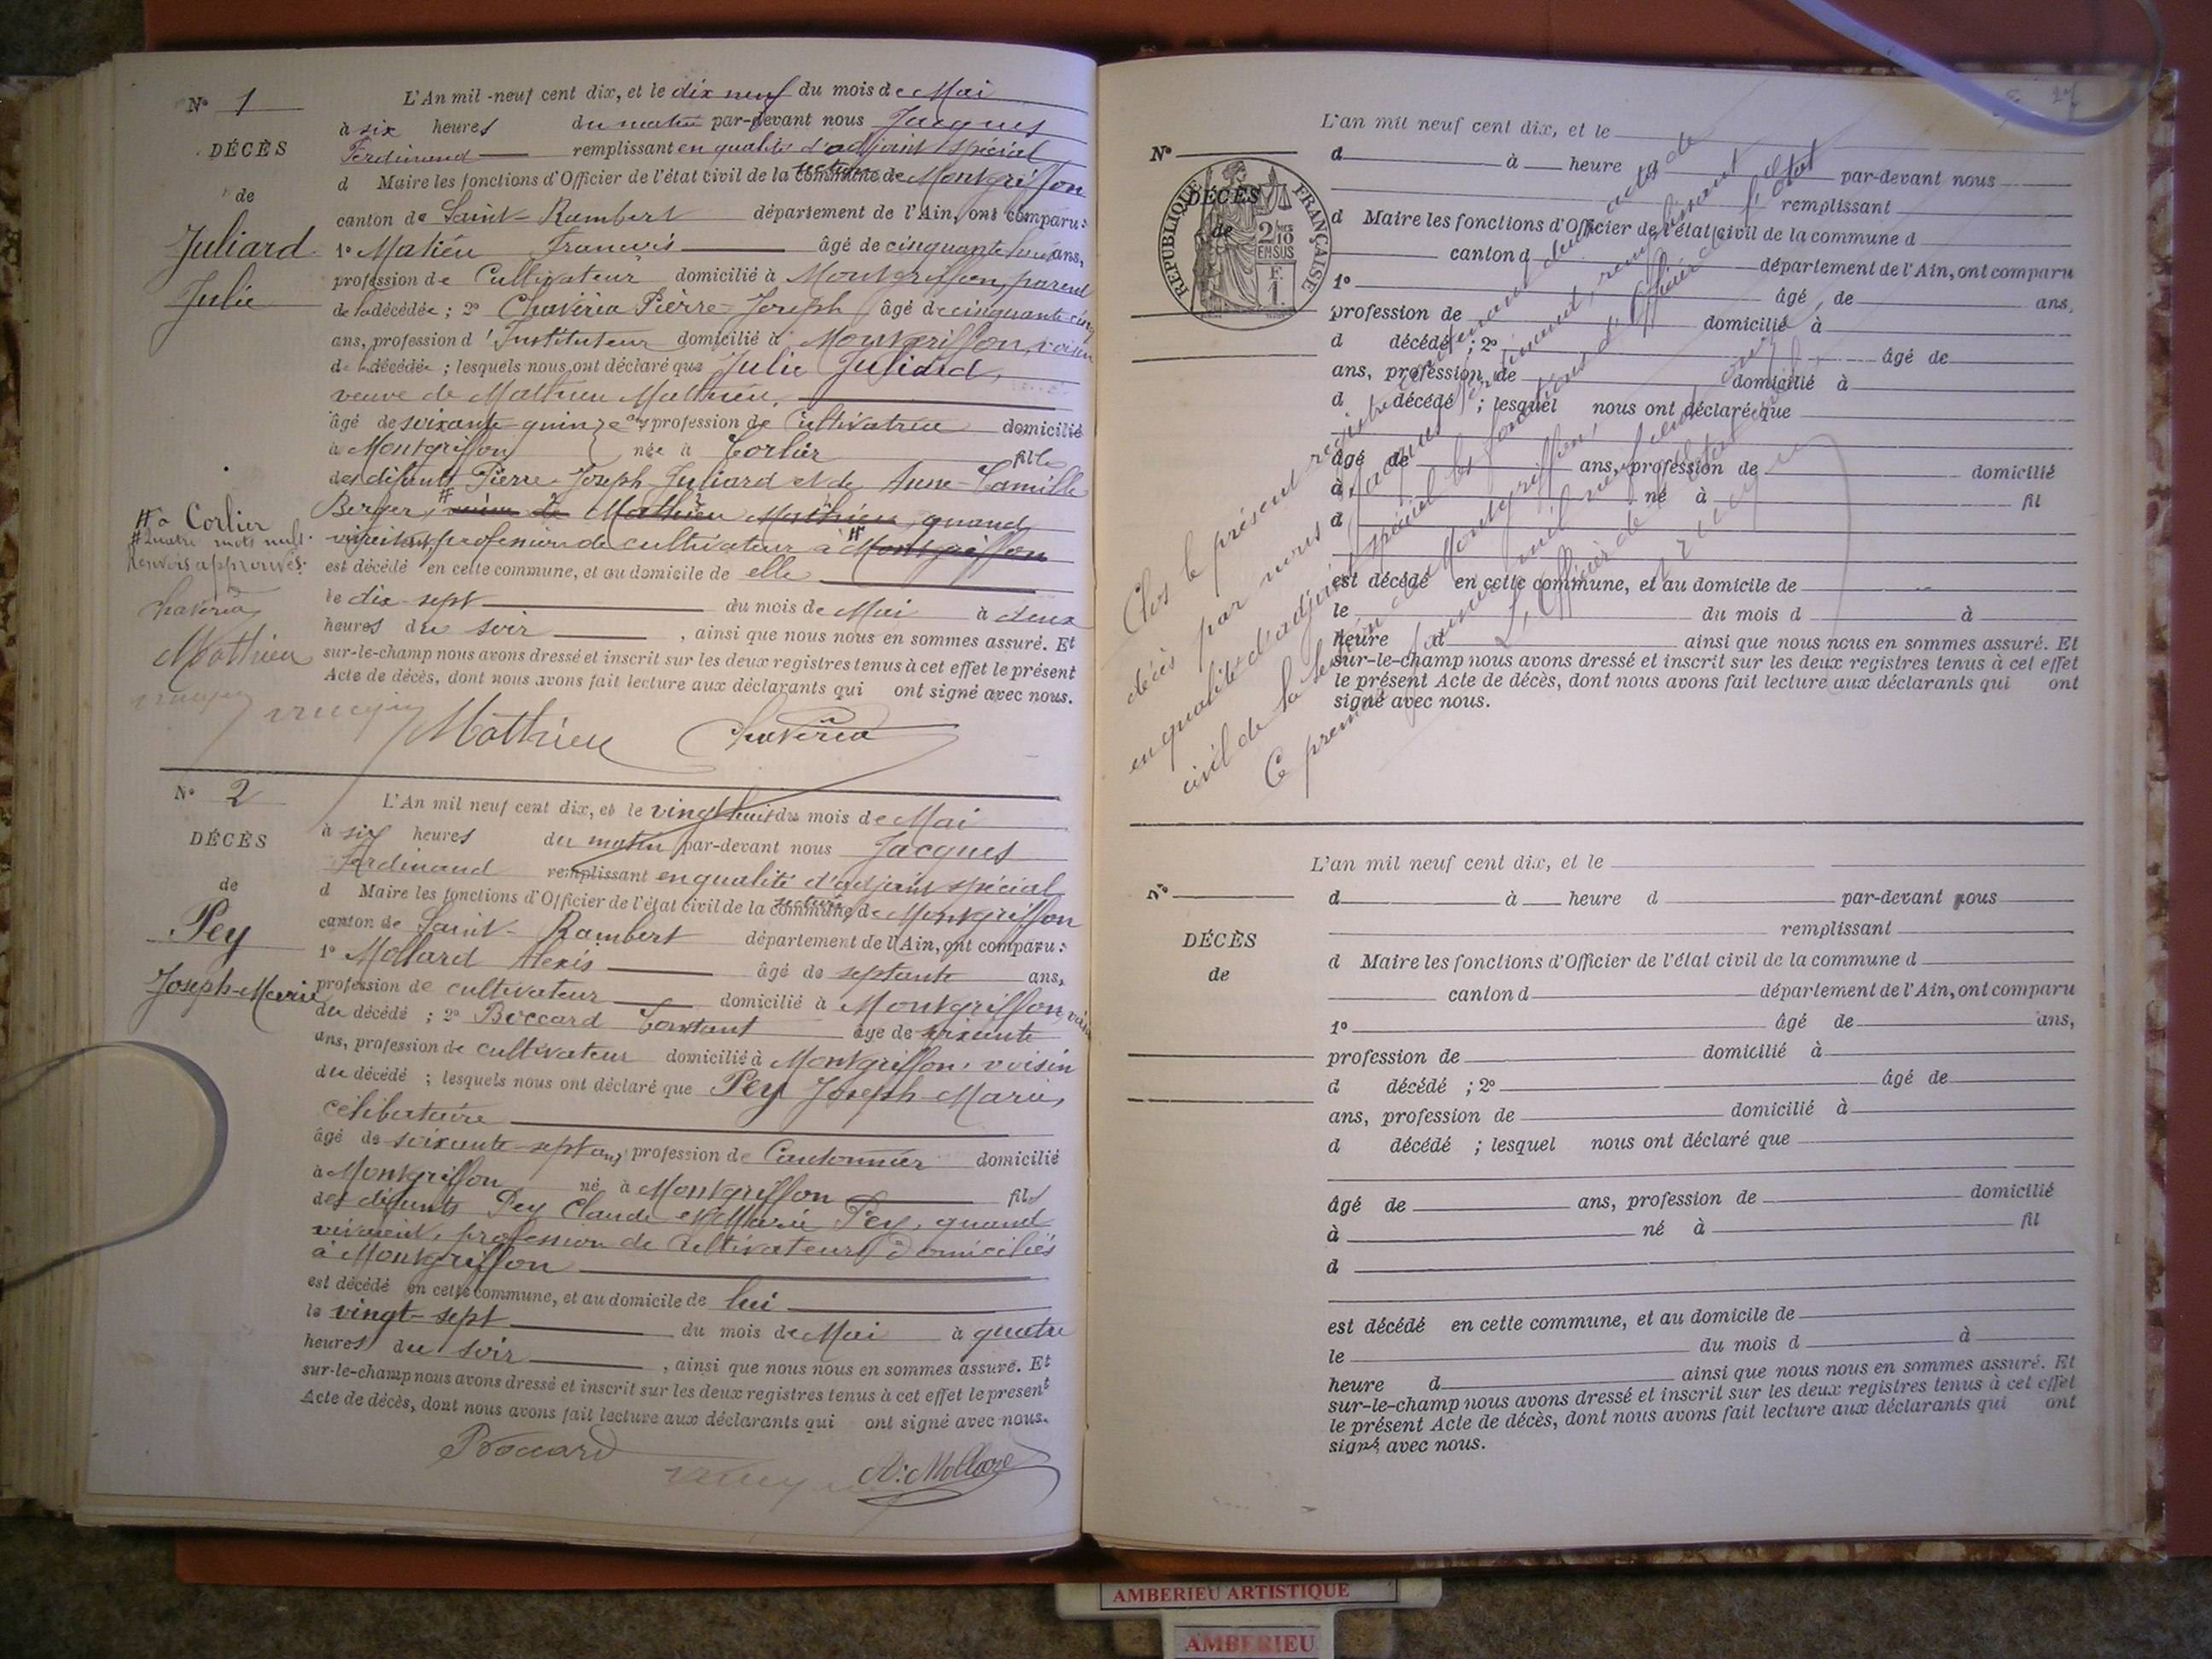 N° 1
DÉCÈS
de
Juliard
Julie
L'An mil-neuf cent dix, et le dix neuf du mois de Mai
à six heures du matin par-devant nous Jacques
Ferdinand remplissant en qualité d'adjoint spécial
d Maire les fonctions d'Officier de l'état civil de la commune section de Montgriffon
canton de Saint-Rambert département de l'Ain, ont comparu :
1° Matieu François âgé de cinquante huit ans,
profession de Cultivateur domicilié à Montgriffon, parent
de la décédée ; 2° Chavéria Pierre-Joseph âgé de cinquante cinq
ans, profession d'Instituteur domicilié à Montgriffon, voisin
de la décédée ; lesquels nous ont déclaré que Julie Juliard,
veuve de Mathieu Mathieu,
âgé de soixante-quinze ans profession de Cultivatrice domicilié
à Montgriffon née à Corlier fille
des défunts Pierre-Joseph Juliard et de Anne-Camille
Berger, # Mathieu Mathieu, quand
vivaient, profession de cultivateur à # Montgriffon
est décédé en cette commune, et au domicile de elle
le dix-sept du mois de Mai à deux
heures du soir, ainsi que nous nous en sommes assuré. Et
sur-le-champ nous avons dressé et inscrit sur les deux registres tenus à cet effet le présent
Acte de décès, dont nous avons fait lecture aux déclarants qui ont signé avec nous.
# à Corlier
# Quatre mots nuls.
Renvois approuvés.
Chavéria
Mathieu
Mathieu Chavéria
N° 2
DÉCÈS
de
Pey
Joseph-Marie
L'An mil neuf cent dix, et le vingt huit du mois de Mai
à six heures du matin par-devant nous Jacques
Ferdinand remplissant en qualité d'adjoint spécial
d Maire les fonctions d'Officier de l'état civil de la commune section de Montgriffon
canton de Saint-Rambert département de l'Ain, ont comparu :
1° Mollard Alexis âgé de septante ans,
profession de cultivateur domicilié à Montgriffon, voisin
du décédé ; 2° Boccard Constant âgé de soixante
ans, profession de cultivateur domicilié à Montgriffon, voisin
du décédé ; lesquels nous ont déclaré que Pey Joseph-Marie,
célibataire
âgé de soixante-sept ans, profession de Cantonnier domicilié
à Montgriffon né à Montgriffon fils
des défunts Pey Claude et Marie Pey, quand
vivaient, profession de Cultivateurs domiciliés
à Montgriffon
est décédé en cette commune, et au domicile de lui
le vingt-sept du mois de Mai à quatre
heures du soir, ainsi que nous nous en sommes assuré. Et
sur-le-champ nous avons dressé et inscrit sur les deux registres tenus à cet effet le présent
Acte de décès, dont nous avons fait lecture aux déclarants qui ont signé avec nous.
Boccard A. Mollard
27
N°
DÉCÈS
de
RÉPUBLIQUE FRANÇAISE
2/10 EN SUS
F. 1.
L'an mil neuf cent dix, et le
d à heure d par-devant nous
remplissant
d Maire les fonctions d'Officier de l'état civil de la commune d
canton d département de l'Ain, ont comparu
1° âgé de ans,
profession de domicilié à
d décédé ; 2° âgé de
ans, profession de domicilié à
d décédé ; lesquel nous ont déclaré que
âgé de ans, profession de domicilié
à né à fil
d
est décédé en cette commune, et au domicile de
le du mois d à
heure d ainsi que nous nous en sommes assuré. Et
sur-le-champ nous avons dressé et inscrit sur les deux registres tenus à cet effet
le présent Acte de décès, dont nous avons fait lecture aux déclarants qui ont
signé avec nous.
Clos le présent registre des actes de
décès par nous Jacques Ferdinand, remplissant
en qualité d'adjoint spécial les fonctions d'Officier de l'état
civil de la section de Montgriffon,
Ce premier janvier mil neuf cent onze
L'Officier de l'état civil,
N°
DÉCÈS
de
L'an mil neuf cent dix, et le
d à heure d par-devant nous
remplissant
d Maire les fonctions d'Officier de l'état civil de la commune d
canton d département de l'Ain, ont comparu
1° âgé de ans,
profession de domicilié à
d décédé ; 2° âgé de
ans, profession de domicilié à
d décédé ; lesquel nous ont déclaré que
âgé de ans, profession de domicilié
à né à fil
d
est décédé en cette commune, et au domicile de
le du mois d à
heure d ainsi que nous nous en sommes assuré. Et
sur-le-champ nous avons dressé et inscrit sur les deux registres tenus à cet effet
le présent Acte de décès, dont nous avons fait lecture aux déclarants qui ont
signé avec nous.
AMBERIEU ARTISTIQUE
AMBERIEU